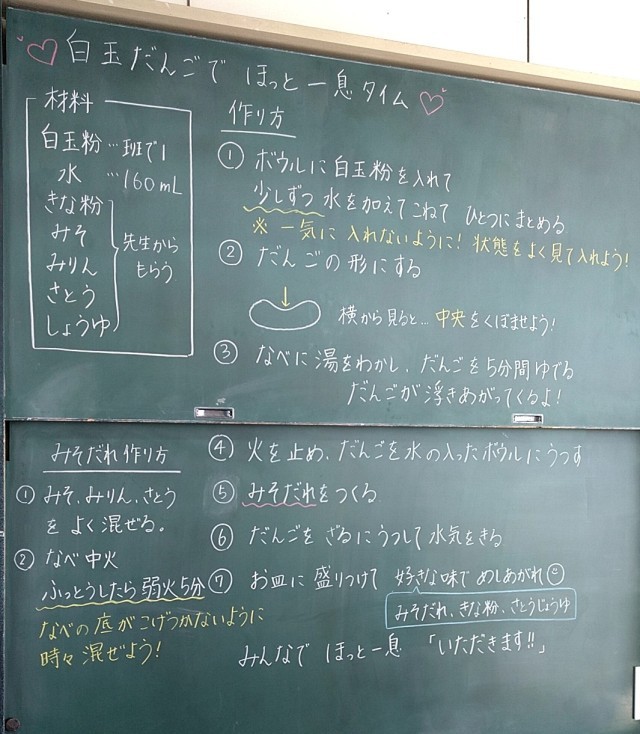 白玉だんごで ほっと一息タイム
材料
白玉粉…班で1
水 …160mL
きな粉
みそ
みりん
さとう
しょうゆ
先生から
もらう
作り方
① ボウルに白玉粉を入れて
少しずつ 水を加えてこねて ひとつにまとめる
※ 一気に入れないように! 状態をよく見て入れよう!
② だんごの形にする
横から見ると… 中央をくぼませよう!
③ なべに湯をわかし、だんごを5分間ゆでる
だんごが浮きあがってくるよ!
④ 火を止め、だんごを水の入ったボウルにうつす
⑤ みそだれをつくる
⑥ だんごを ざるにうつして水気をきる
⑦ お皿に盛りつけて 好きな味で めしあがれ
みそだれ、きな粉、さとうじょうゆ
みんなで ほっと一息 「いただきます!!」
みそだれ作り方
① みそ、みりん、さとう
を よく混ぜる。
② なべ 中火
ふっとうしたら弱火5分
なべの底がこげつかないように
時々混ぜよう!